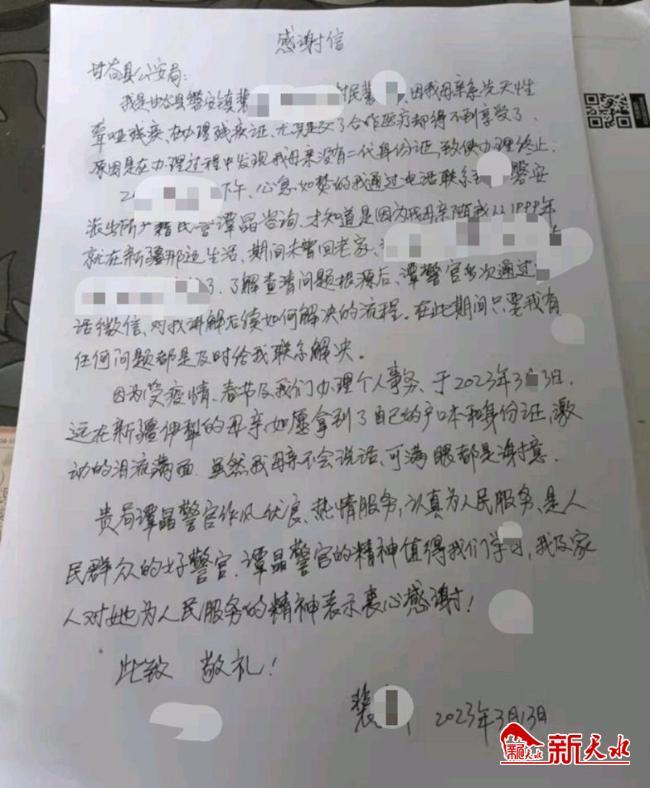 感谢信
甘谷县公安局:
我是甘谷县磐安镇裴 村民裴 ,因我母亲系先天性
聋哑残疾、在办理残疾证、尤其是交了合作医疗都得不到享受了、
原因是在办理过程中发现我母亲没有二代身份证、致使办理终止.
2 下午、心急如焚的我通过电话联系 磐安
派出所户籍民警谭晶咨询、才知道是因为我母亲随我从1998年
就在新疆那边生活、期间未曾回老家、
3、了解查清问题根源后、谭警官多次通过
话微信、对我讲解后续如何解决的流程。在此期间只要我有
任何问题都是及时给我联系解决。
因为受疫情、春节及我们办理个人事务、于2023年3月3日,
远在新疆伊犁的母亲如愿拿到了自己的户口本和身份证,激
动的泪流满面.虽然我母亲不会说话、可满眼都是谢意.
贵局谭晶警官作风优良、热情服务,认真为人民服务、是人
民群众的好警官.谭晶警官的精神值得我们学习,我及家
人对她为人民服务的精神表示衷心感谢!
此致 敬礼!
裴
2023年3月13日
新天水